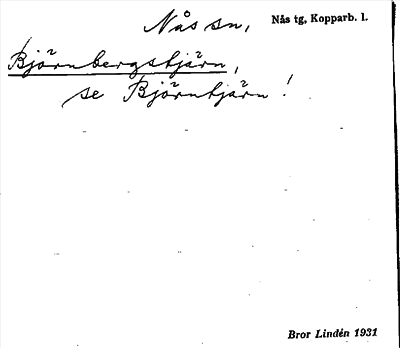 Nås sn, Nås tg, Kopparb. l.
Björnbergstjärn,
se Björntjärn!
Bror Lindén 1931